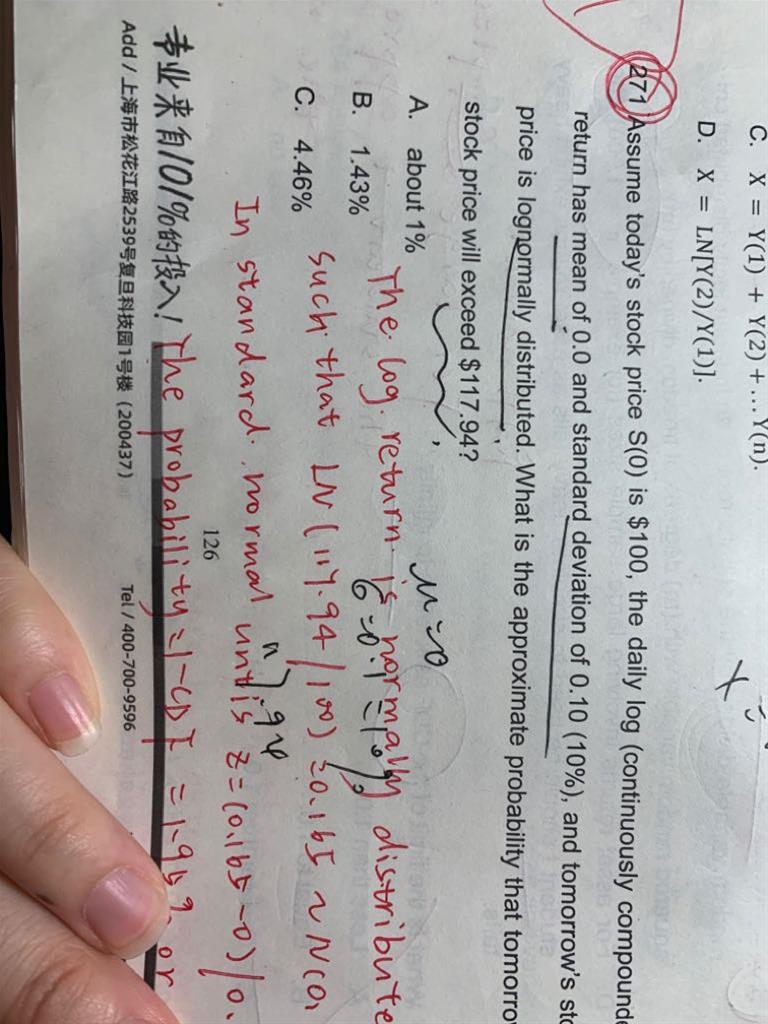 C. X = Y(1) + Y(2) + ... Y(n).
D. X = LN[Y(2)/Y(1)].
271 Assume today's stock price S(0) is $100, the daily log (continuously compounde
return has mean of 0.0 and standard deviation of 0.10 (10%), and tomorrow's sto
price is lognormally distributed. What is the approximate probability that tomorro
stock price will exceed $117.94?
A. about 1%
B. 1.43%
C. 4.46%
The log return is normally distribute
such that LN(117.94/100) = 0.165 ~ N(0,
In standard normal units z = (0.165 - 0)/0.
The probability = 1 -
126
专业来自101%的投入!
Add / 上海市松花江路2539号复旦科技园1号楼 (200437) Tel / 400-700-9596